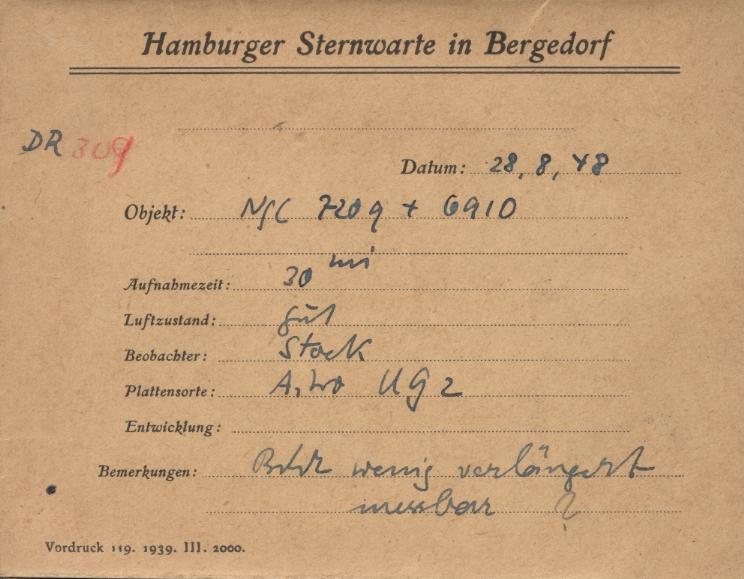 Hamburger Sternwarte in Bergedorf
DR 309
Datum: 28, 8, 48
Objekt: NGC 7209 + 6910
Aufnahmezeit: 30 mi
Luftzustand: gut
Beobachter: Stock
Plattensorte: Astro UG 2
Entwicklung:
Bemerkungen: Bild wenig verlängert
messbar ?
Vordruck 119. 1939. III. 2000.